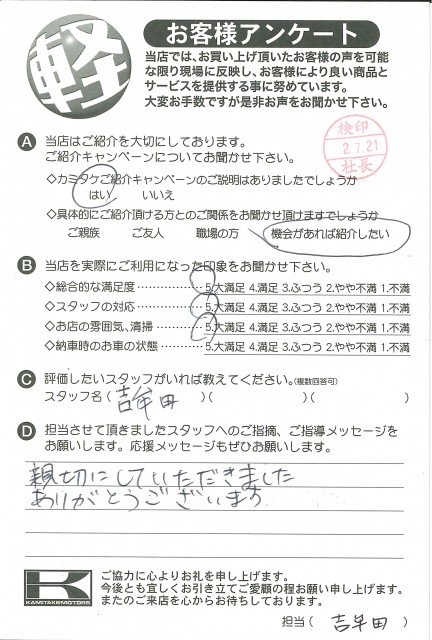 軽
お客様アンケート
当店では、お買い上げ頂いたお客様の声を可能
な限り現場に反映し、お客様により良い商品と
サービスを提供する事に努めています。
大変お手数ですが是非お声をお聞かせ下さい。
検印
2.7.21
社長
A 当店はご紹介を大切にしております。
ご紹介キャンペーンについてお聞かせ下さい。
◇カミタケご紹介キャンペーンのご説明はありましたでしょうか
はい いいえ
◇具体的にご紹介頂ける方とのご関係をお聞かせ頂けますでしょうか
ご親族 ご友人 職場の方 機会があれば紹介したい
B 当店を実際にご利用になった印象をお聞かせ下さい。
◇総合的な満足度 5.大満足 4.満足 3.ふつう 2.やや不満 1.不満
◇スタッフの対応 5.大満足 4.満足 3.ふつう 2.やや不満 1.不満
◇お店の雰囲気、清掃 5.大満足 4.満足 3.ふつう 2.やや不満 1.不満
◇納車時のお車の状態 5.大満足 4.満足 3.ふつう 2.やや不満 1.不満
C 評価したいスタッフがいれば教えてください。(複数回答可)
スタッフ名（吉牟田）（ ）（ ）
D 担当させて頂きましたスタッフへのご指摘、ご指導メッセージを
お願いします。応援メッセージもぜひお願いします。
親切にしていただきました
ありがとうございます
K
KAMITAKEMOTORS
ご協力に心よりお礼を申し上げます。
今後とも宜しくお引き立てご愛顧の程お願い申し上げます。
またのご来店を心からお待ちしております。
担当（ 吉牟田 ）